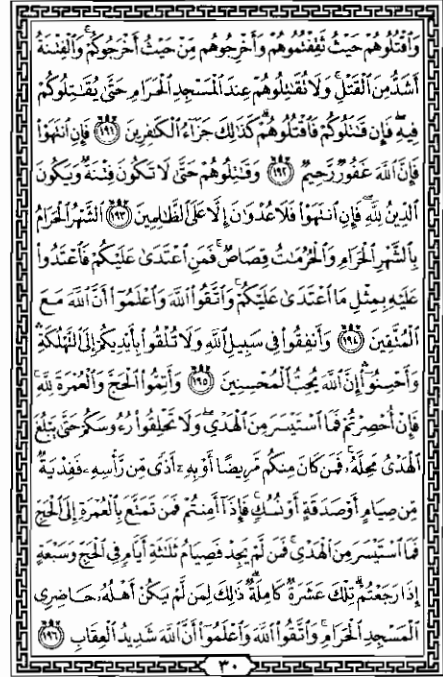 وَٱقۡتُلُوهُمۡ حَيۡثُ ثَقِفۡتُمُوهُمۡ وَأَخۡرِجُوهُم مِّنۡ حَيۡثُ أَخۡرَجُوكُمۡۚ وَٱلۡفِتۡنَةُ
أَشَدُّ مِنَ ٱلۡقَتۡلِۚ وَلَا تُقَٰتِلُوهُمۡ عِندَ ٱلۡمَسۡجِدِ ٱلۡحَرَامِ حَتَّىٰ يُقَٰتِلُوكُمۡ
فِيهِۖ فَإِن قَٰتَلُوكُمۡ فَٱقۡتُلُوهُمۡۗ كَذَٰلِكَ جَزَآءُ ٱلۡكَٰفِرِينَ ١٩١ فَإِنِ ٱنتَهَوۡاْ
فَإِنَّ ٱللَّهَ غَفُورٞ رَّحِيمٞ ١٩٢ وَقَٰتِلُوهُمۡ حَتَّىٰ لَا تَكُونَ فِتۡنَةٞ وَيَكُونَ
ٱلدِّينُ لِلَّهِۖ فَإِنِ ٱنتَهَوۡاْ فَلَا عُدۡوَٰنَ إِلَّا عَلَى ٱلظَّٰلِمِينَ ١٩٣ ٱلشَّهۡرُ ٱلۡحَرَامُ
بِٱلشَّهۡرِ ٱلۡحَرَامِ وَٱلۡحُرُمَٰتُ قِصَاصٞۚ فَمَنِ ٱعۡتَدَىٰ عَلَيۡكُمۡ فَٱعۡتَدُواْ
عَلَيۡهِ بِمِثۡلِ مَا ٱعۡتَدَىٰ عَلَيۡكُمۡۚ وَٱتَّقُواْ ٱللَّهَ وَٱعۡلَمُوٓاْ أَنَّ ٱللَّهَ مَعَ
ٱلۡمُتَّقِينَ ١٩٤ وَأَنفِقُواْ فِي سَبِيلِ ٱللَّهِ وَلَا تُلۡقُواْ بِأَيۡدِيكُمۡ إِلَى ٱلتَّهۡلُكَةِ
وَأَحۡسِنُوٓاْۚ إِنَّ ٱللَّهَ يُحِبُّ ٱلۡمُحۡسِنِينَ ١٩٥ وَأَتِمُّواْ ٱلۡحَجَّ وَٱلۡعُمۡرَةَ لِلَّهِۚ
فَإِنۡ أُحۡصِرۡتُمۡ فَمَا ٱسۡتَيۡسَرَ مِنَ ٱلۡهَدۡيِۖ وَلَا تَحۡلِقُواْ رُءُوسَكُمۡ حَتَّىٰ يَبۡلُغَ
ٱلۡهَدۡيُ مَحِلَّهُۥۚ فَمَن كَانَ مِنكُم مَّرِيضًا أَوۡ بِهِۦٓ أَذٗى مِّن رَّأۡسِهِۦ فَفِدۡيَةٞ
مِّن صِيَامٍ أَوۡ صَدَقَةٍ أَوۡ نُسُكٖۚ فَإِذَآ أَمِنتُمۡ فَمَن تَمَتَّعَ بِٱلۡعُمۡرَةِ إِلَى ٱلۡحَجِّ
فَمَا ٱسۡتَيۡسَرَ مِنَ ٱلۡهَدۡيِۚ فَمَن لَّمۡ يَجِدۡ فَصِيَامُ ثَلَٰثَةِ أَيَّامٖ فِي ٱلۡحَجِّ وَسَبۡعَةٍ
إِذَا رَجَعۡتُمۡۗ تِلۡكَ عَشَرَةٞ كَامِلَةٞۗ ذَٰلِكَ لِمَن لَّمۡ يَكُنۡ أَهۡلُهُۥ حَاضِرِي
ٱلۡمَسۡجِدِ ٱلۡحَرَامِۚ وَٱتَّقُواْ ٱللَّهَ وَٱعۡلَمُوٓاْ أَنَّ ٱللَّهَ شَدِيدُ ٱلۡعِقَابِ ١٩٦
٣٠